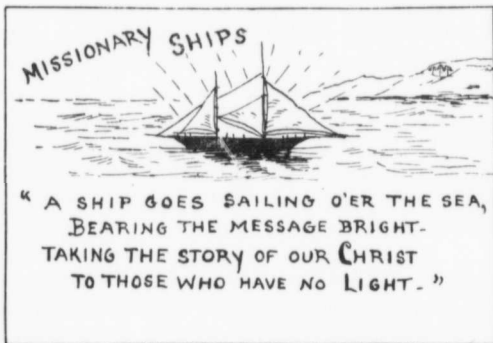 MISSIONARY SHIPS
“ A SHIP GOES SAILING O'ER THE SEA,
BEARING THE MESSAGE BRIGHT-
TAKING THE STORY OF OUR CHRIST
TO THOSE WHO HAVE NO LIGHT- ”